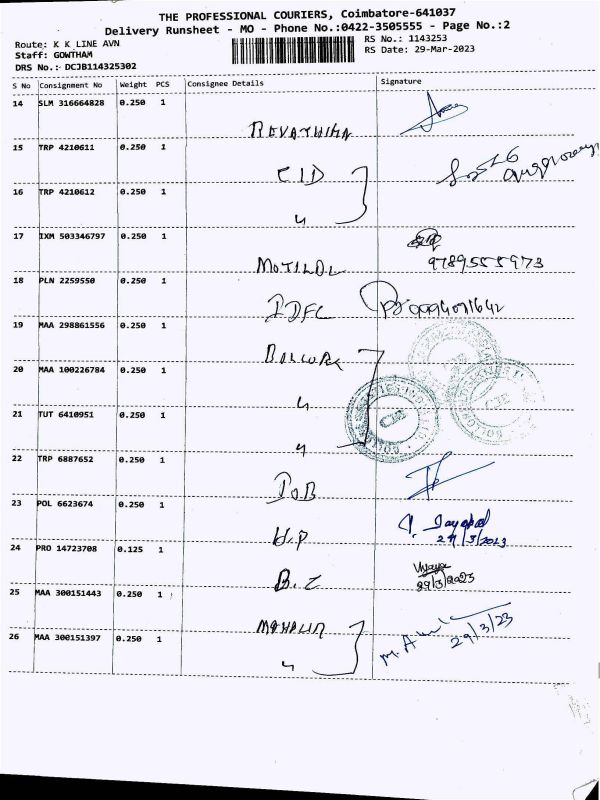 THE PROFESSIONAL COURIERS, Coimbatore-641037
Delivery Runsheet - MO - Phone No.:0422-3505555 - Page No.:2
Route: K K LINE AVN
RS No.: 1143253
Staff: GOWTHAM
RS Date: 29-Mar-2023
DRS No.:- DCJB114325302
S No Consignment No Weight PCS Consignee Details Signature
14 SLM 316664828 0.250 1
15 TRP 4210611 0.250 1
CID
16 TRP 4210612 0.250 1
17 IXM 503346797 0.250 1
MOTILAL 9789555973
18 PLN 2259550 0.250 1
IDFC
19 MAA 298861556 0.250 1
20 MAA 100226784 0.250 1
21 TUT 6410951 0.250 1
22 TRP 6887652 0.250 1
23 POL 6623674 0.250 1
24 PRO 14723708 0.125 1
29/3/2023
25 MAA 300151443 0.250 1
26 MAA 300151397 0.250 1
29/3/23